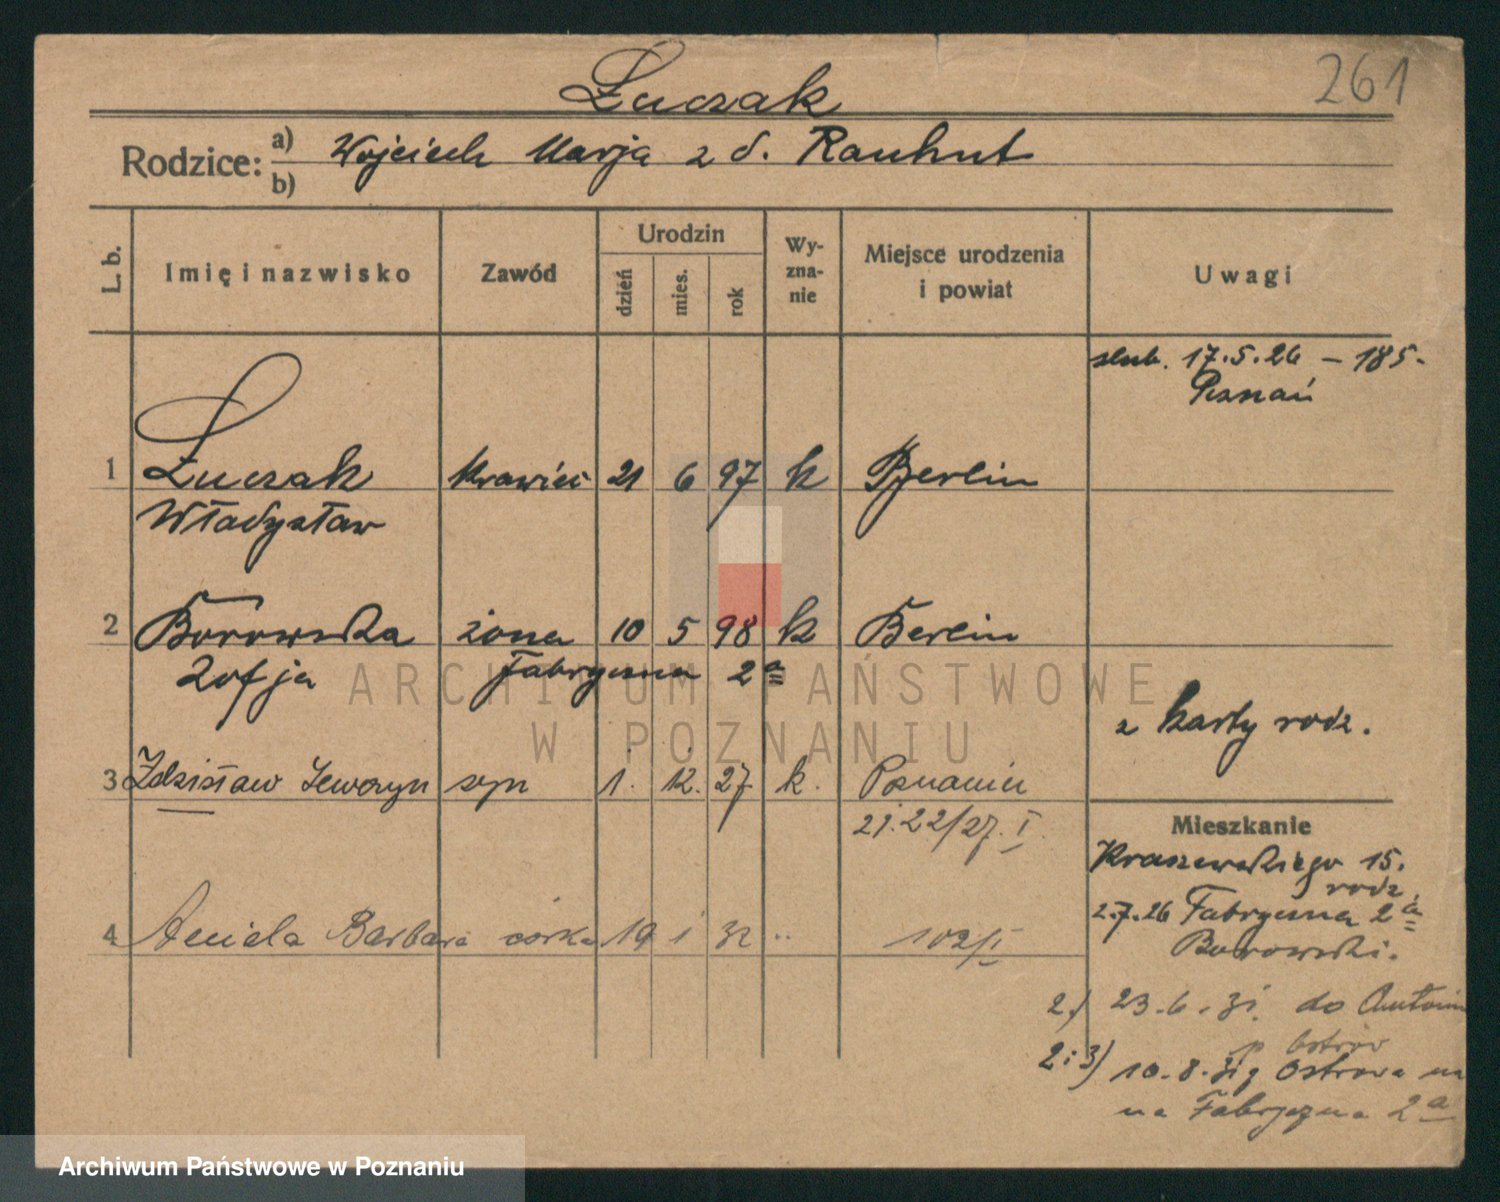 Łuczak
261
Rodzice: a) b) Wojciech Marja z d. Rauhut
L. b.
Imię i nazwisko
Zawód
Urodzin
dzień
mies.
rok
Wy-
zna-
nie
Miejsce urodzenia
i powiat
Uwagi
ślub. 17.5.26 – 185.
Poznań
1 Łuczak krawiec 21 6 97 k Berlin
Władysław
2 Borowska żona 10 5 98 k Berlin
Zofja Fabryczna 2a
z karty rodz.
3 Zdzisław Seweryn syn 1. 12. 27 k. Poznaniu
Mieszkanie
Kraszewskiego 15.
rodz.
2.7.26 Fabryczna 2a
Borowski.
4 Aniela Barbara córka 19 1 32 102/I
2.) 23.6.31. do Antonin
p Ostrów
2 i 3) 10.8.31 z Ostrowa
na Fabryczna 2a
ARCHIWUM PAŃSTWOWE
W POZNANIU
Archiwum Państwowe w Poznaniu